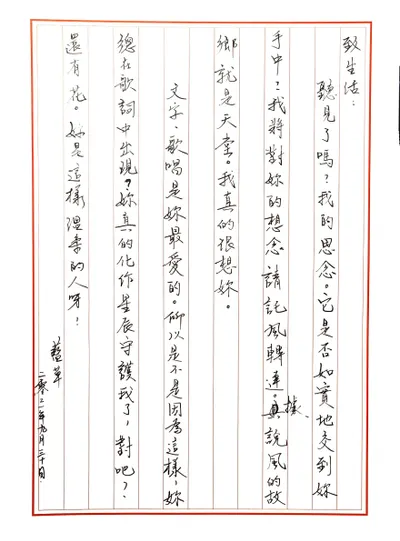 致生活：
聽見了嗎？我的思念。它是否如實地交到妳
手中？我將對妳的想念請託風轉達。據說風的故
鄉就是天堂。我真的很想妳。
文字、歌唱是妳最愛的。所以是不是因為這樣，妳
總在歌詞中出現？妳真的化作星辰守護我了，對吧？
還有花。妳是這樣溫柔的人呀！
草
年九月三十日